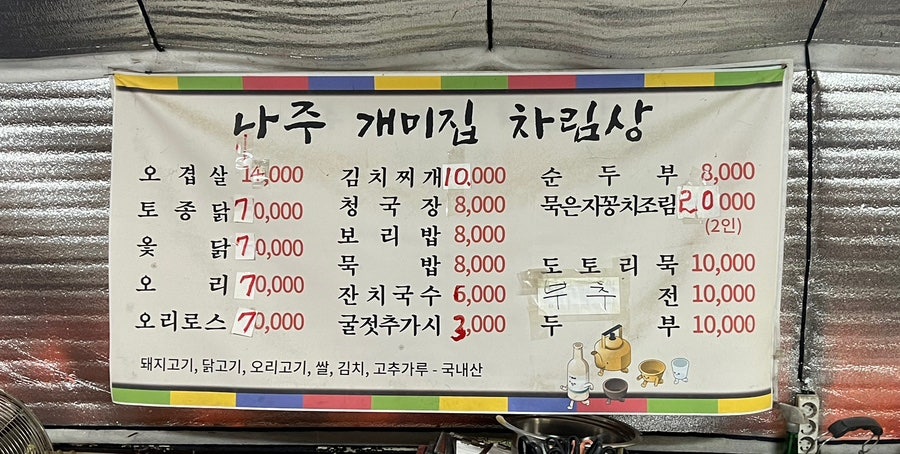 나주 개미집 차림상
오겹살 14,000
토종닭 70,000
옻닭 70,000
오리 70,000
오리로스 70,000
김치찌개 10,000
청국장 8,000
보리밥 8,000
묵밥 8,000
잔치국수 6,000
굴젓추가시 3,000
순두부 8,000
묵은지꽁치조림 20000
(2인)
도토리묵 10,000
부추전 10,000
두부 10,000
돼지고기, 닭고기, 오리고기, 쌀, 김치, 고추가루 - 국내산